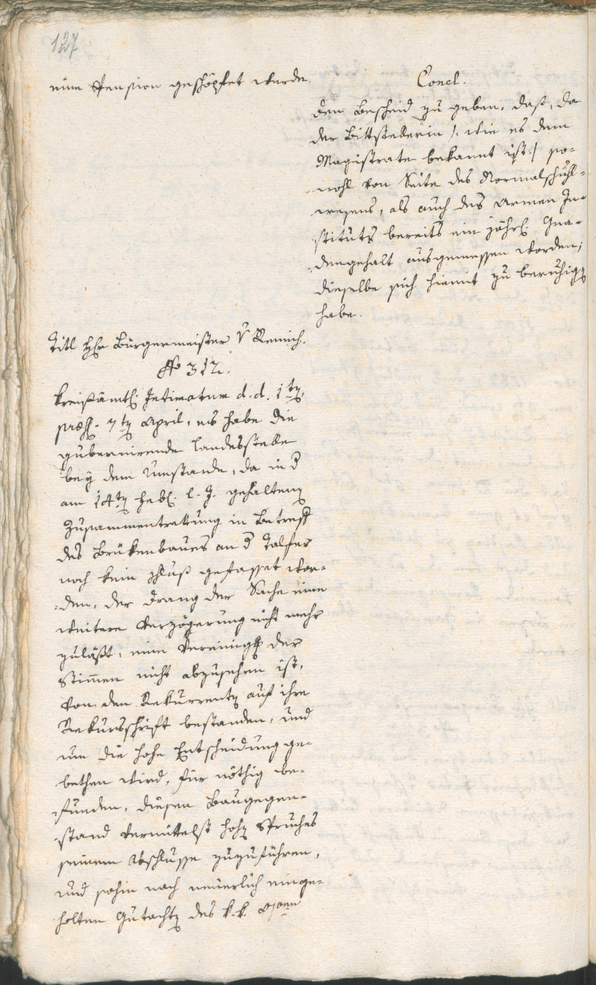 127
eine Pension geschöpfet werde.
Concl.
den Bescheid zu geben, daß, da
der Bittstellerin /: wie es dem
Magistrate bekannt ist :/ so-
wohl von Seite des Normalschuhl-
wesens, als auch des Armen In-
stituts bereits ein jährl. Gna-
dengehalt ausgemessen worden,
dieselbe sich hiemit zu beruhigen
habe.
Titl Hr Bürgermeister v Remich.
No 312.
Kreisämtl. Intimatum d. d. 1ten
praes. 7ten April, es habe die
gubernirende Landesstelle
bey dem Umstande, da in der
am 14ten Febr. l. J. gehaltenen
Zusammentrettung in Betreff
des Brükenbaues an der Talfer
noch kein Schluß gefasset wor-
den, der Drang der Sache eine
weitere Verzögerung nicht mehr
zuläßt, eine Vereinigung der
Stimmen nicht abzusehen ist,
von den Rekurrenten auf ihre
Rekursschrift bestanden, und
um die hohe Entscheidung ge-
bethen wird, für nöthig be-
funden, diesen Baugegen-
stand vermittelst hohen Spruches
seinem Abschlusse zuzuführen,
und sohin nach neuerlich einge-
holten Gutachten des k. k.